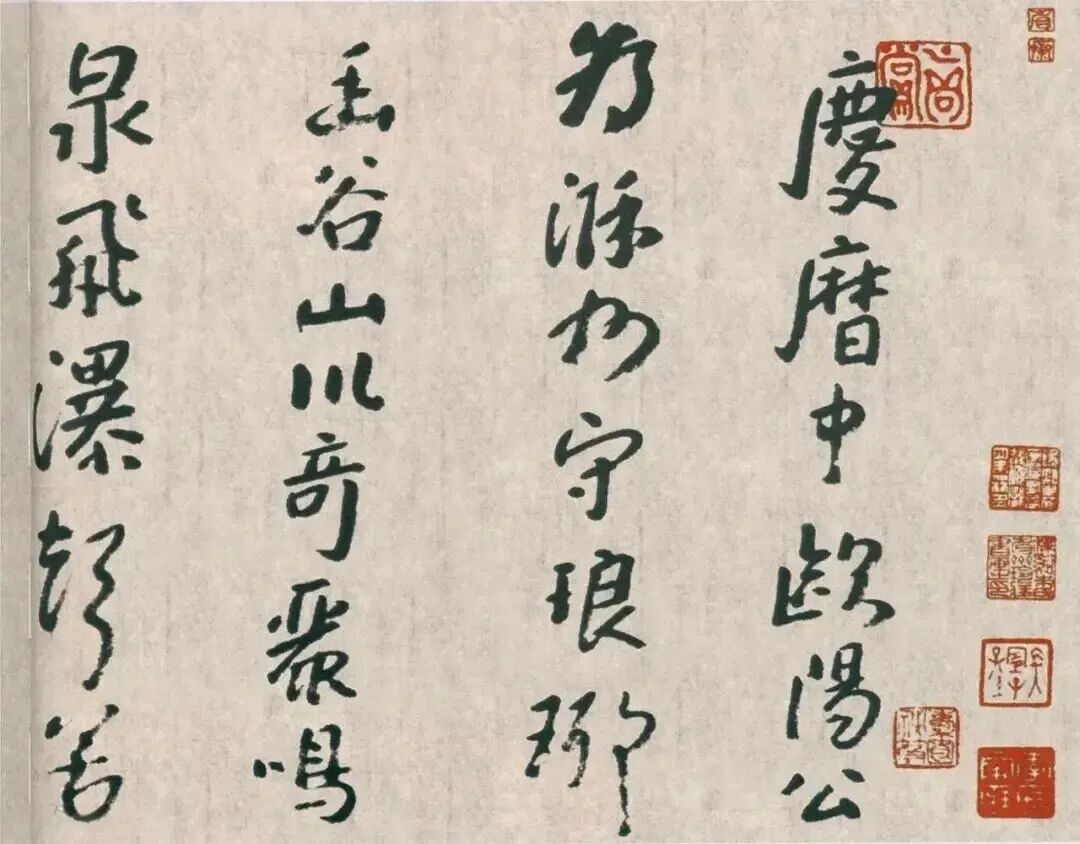 慶曆中歐陽公
為滁州守琅琊
幽谷山川奇麗鳴
泉飛瀑聲若